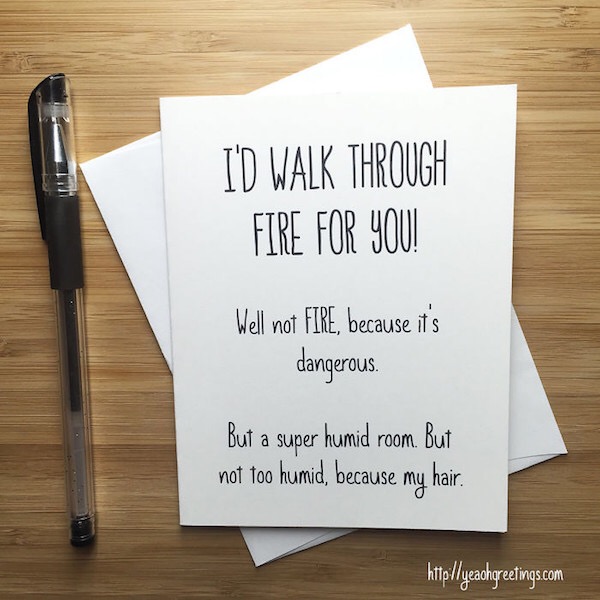 I'D WALK THROUGH
FIRE FOR YOU!
Well not FIRE, because it's
dangerous.
But a super humid room. But
not too humid, because my hair.
http://yeaohgreetings.com